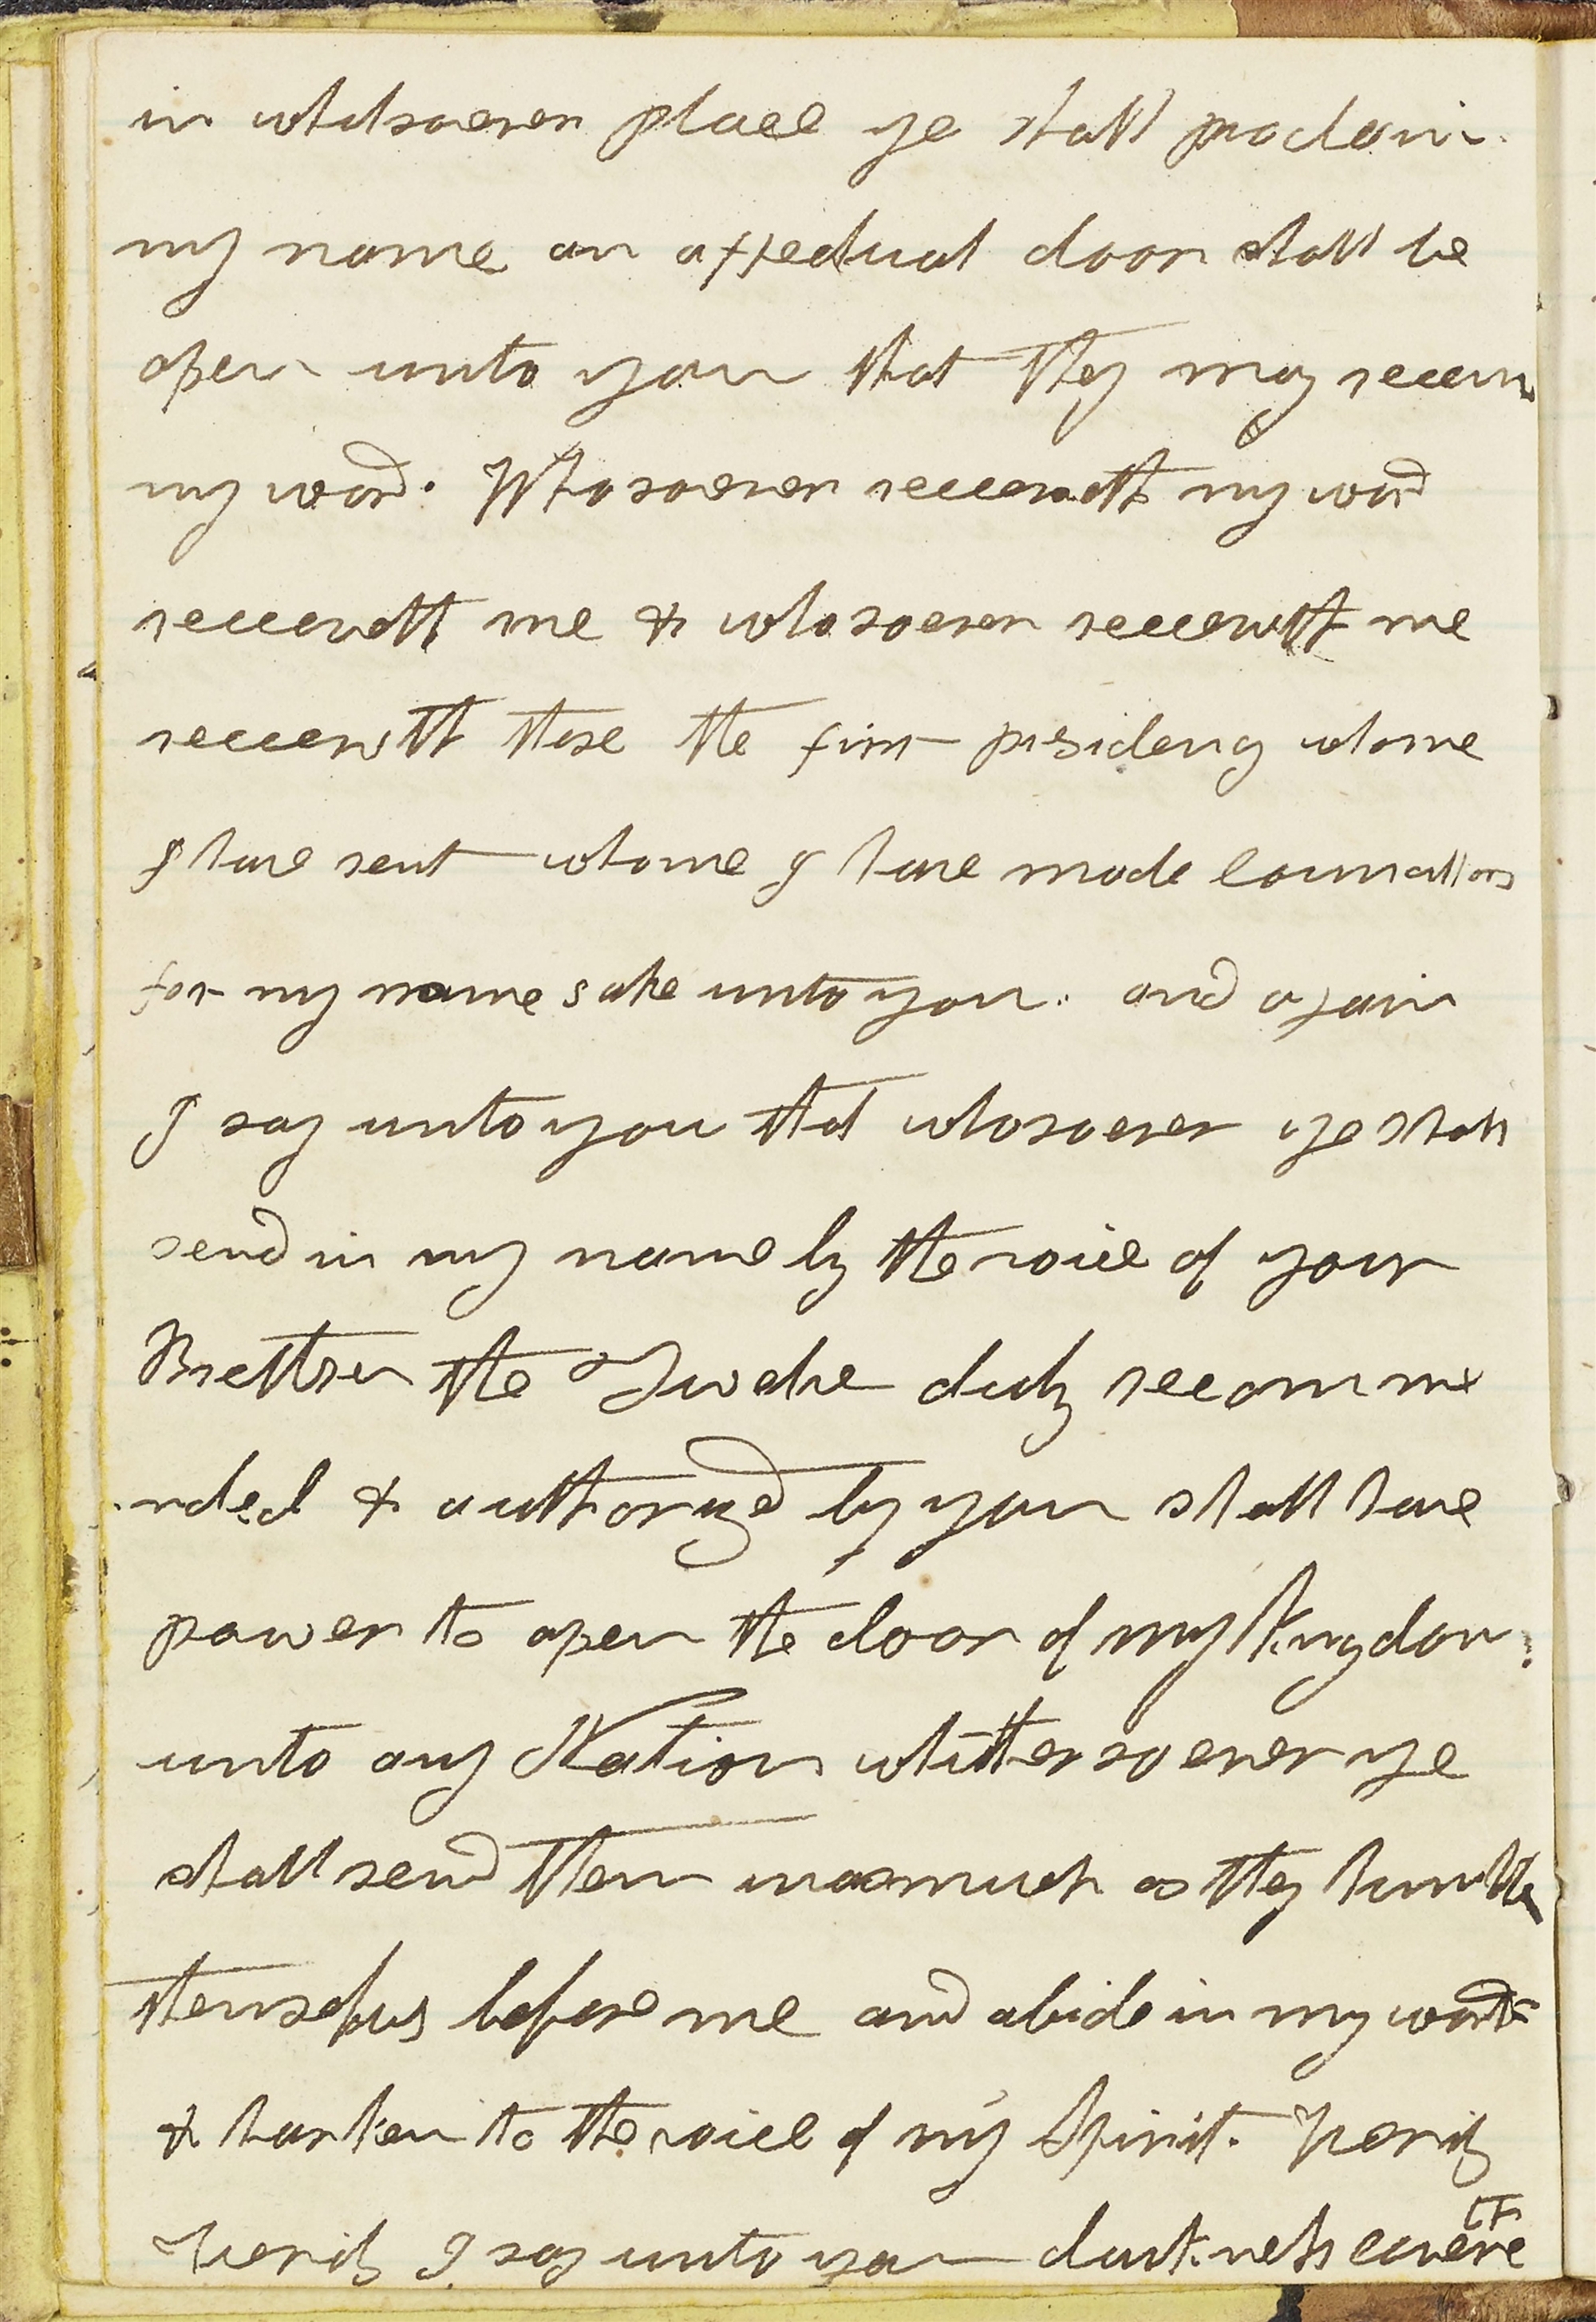 in whatsoever place ye shall proclaim
my name an affectual door shall be
open unto you that they may receive
my word. Whosoever receiveth my word
receiveth me & whosoever receiveth me
receiveth those the first presidency whome
I have sent whome I have made councellors
for my name sake unto you. and again
I say unto you that whosoever ye shall
send in my name by the voice of your
Brethren the Twelve duly recomme
nded & authorized by you shall have
power to open the door of my Kingdom
unto any Nation whithersoever ye
shall send them inasmuch as they humble
themselves before me and abide in my word
& harken to the voice of my Spirit. Verily
Verily I say unto you darkness covere
th